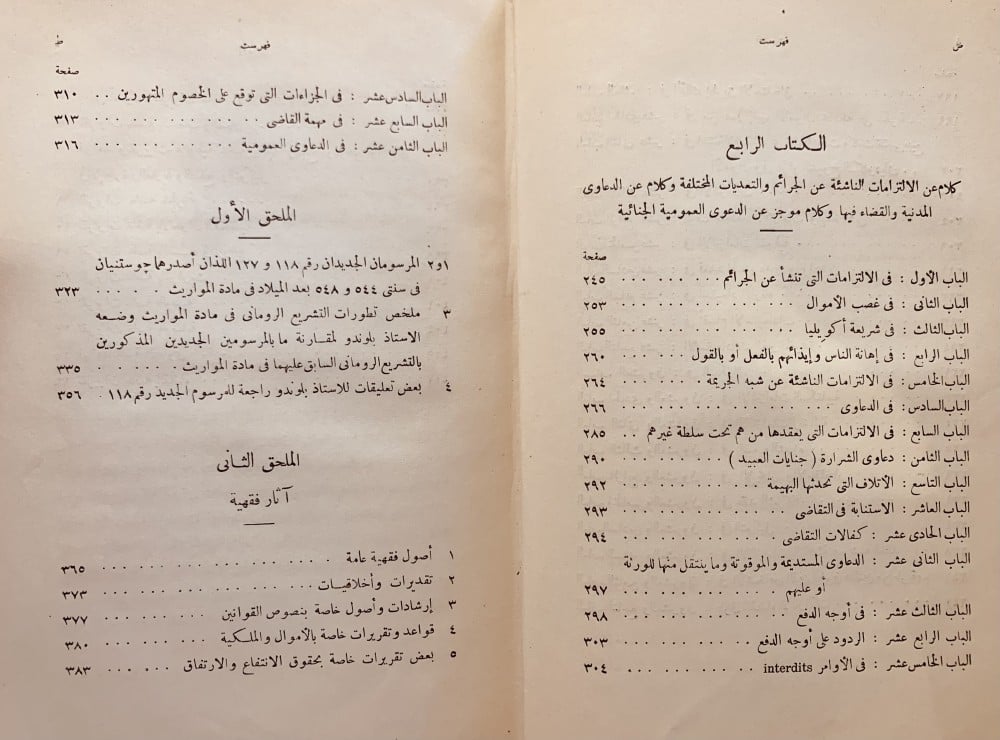 فهرست
صفحة
الكتاب الرابع
كلام عن الالتزامات الناشئة عن الجرائم والتعديات المختلفة وكلام عن الدعاوى
المدنية والقضاء فيها وكلام موجز عن الدعوى العمومية الجنائية
الباب الأول : فى الالتزامات التى تنشأ عن الجرائم . . . . . . . . . ٢٤٥
الباب الثانى : فى غصب الأموال . . . . . . . . . ٢٥٣
الباب الثالث : فى شريعة أكويليا . . . . . . . . . ٢٥٥
الباب الرابع : فى إهانة الناس وإيذائهم بالفعل أو بالقول . . . . . . ٢٦٠
الباب الخامس : فى الالتزامات الناشئة عن شبه الجريمة . . . . . . ٢٦٤
الباب السادس : فى الدعاوى . . . . . . . . . ٢٦٦
الباب السابع : فى الالتزامات التى يعقدها من هم تحت سلطة غيرهم . . ٢٨٥
الباب الثامن : دعاوى الشرارة ( جنايات العبيد ) . . . . . . ٢٩٠
الباب التاسع : الأتلاف التى تحدثها البهيمة . . . . . . ٢٩٢
الباب العاشر : الاستنابة فى التقاضى . . . . . . ٢٩٣
الباب الحادى عشر : كفالات التقاضى . . . . . . ٢٩٤
الباب الثانى عشر : الدعاوى المستديمة والموقوتة وما ينتقل منها للورثة
أو عليهم . . . . . . ٢٩٧
الباب الثالث عشر : فى أوجه الدفع . . . . . . ٢٩٨
الباب الرابع عشر : الردود على أوجه الدفع . . . . . . ٣٠٣
الباب الخامس عشر : فى الأوامر interdits . . . . . . ٣٠٤
فهرست ط
صفحة
الباب السادس عشر : فى الجزاءات التى توقع على الخصوم المتهورين . . ٣١٠
الباب السابع عشر : فى مهمة القاضى . . . . . . ٣١٣
الباب الثامن عشر : فى الدعاوى العمومية . . . . . . ٣١٦
الملحق الأول
١و٢ المرسومان الجديدان رقم ١١٨ و ١٢٧ اللذان أصدرهما چوستنيان
فى سنتى ٥٤٤ و ٥٤٨ بعد الميلاد فى مادة المواريث . . . . ٣٢٣
٣ ملخص تطورات التشريع الرومانى فى مادة المواريث وضعه
الاستاذ بلوندو لمقارنة ما بالمرسومين الجديدين المذكورين
بالتشريع الرومانى السابق عليهما فى مادة المواريث . . . . . ٣٣٥
٤ بعض تعليقات للاستاذ بلوندو راجعة للمرسوم الجديد رقم ١١٨ . ٣٥٦
الملحق الثانى
آثار فقهية
١ أصول فقهية عامة . . . . . . ٣٦٥
٢ تقديرات وأخلاقيات . . . . . . ٣٧٣
٣ إرشادات وأصول خاصة بنصوص القوانين . . . . . . ٣٧٧
٤ قواعد وتقريرات خاصة بالأموال والملكية . . . . . . ٣٨٠
٥ بعض تقريرات خاصة بحقوق الانتفاع والارتفاق . . . . . ٣٨٣